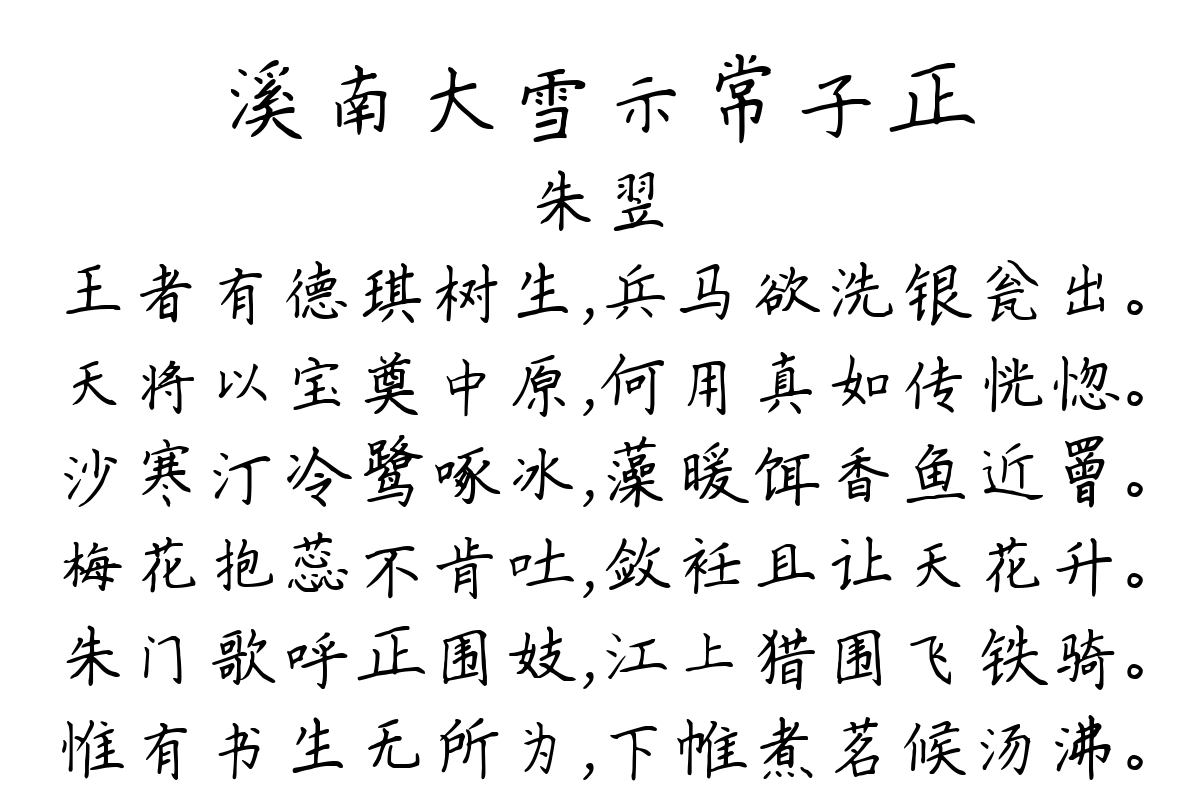 溪南大雪示常子正
朱翌
王者有德琪树生,兵马欲洗银瓮出。
天将以宝奠中原,何用真如传恍惚。
沙寒汀冷鹭啄冰,藻暖饵香鱼近罾。
梅花抱蕊不肯吐,敛衽且让天花升。
朱门歌呼正围妓,江上猎围飞铁骑。
惟有书生无所为,下帷煮茗候汤沸。